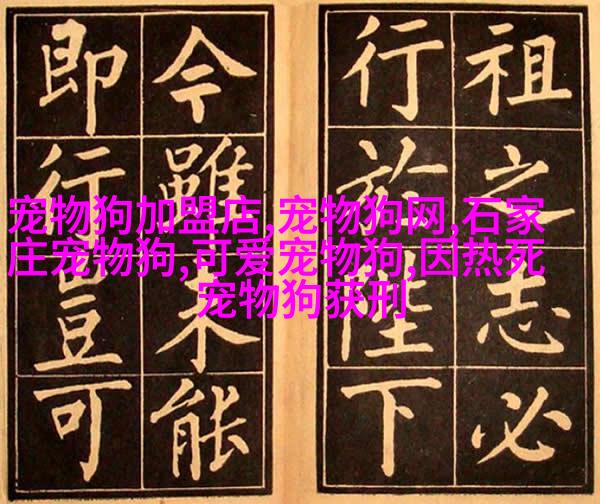 祖之志必
行於陛下
今雖未能
即行豈可
宠物狗加盟店,宠物狗网,石家
庄宠物狗,可爱宠物狗,因热死
宠物狗获刑